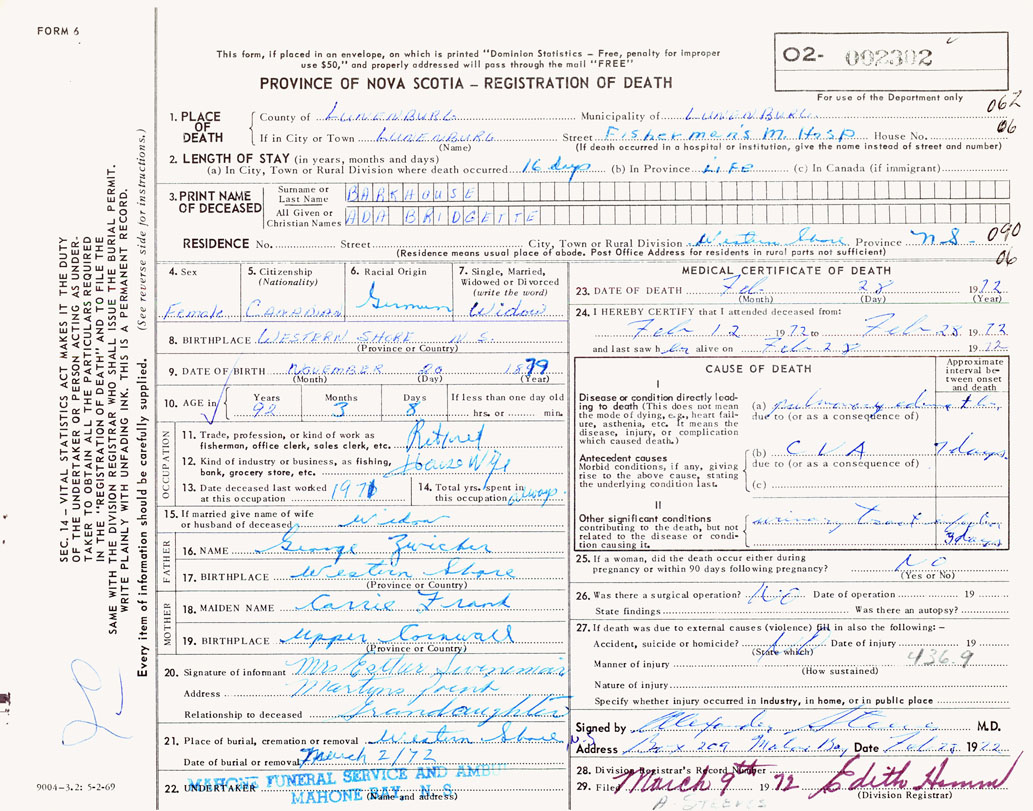 FORM 6
This form, if placed in an envelope, on which is printed "Dominion Statistics – Free, penalty for improper
use $50," and properly addressed will pass through the mail "FREE"
PROVINCE OF NOVA SCOTIA – REGISTRATION OF DEATH
O2- 002302
For use of the Department only
062
06
1. PLACE OF DEATH
County of LUNENBURG Municipality of LUNENBURG
If in City or Town LUNENBURG Street Fishermen's M. Hosp House No.
(Name) (If death occurred in a hospital or institution, give the name instead of street and number)
2. LENGTH OF STAY (in years, months and days)
(a) In City, Town or Rural Division where death occurred 16 days (b) In Province LIFE (c) In Canada (if immigrant)
3. PRINT NAME OF DECEASED
Surname or Last Name BARKHOUSE
All Given or Christian Names ADA BRIDGETTE
RESIDENCE No. Street City, Town or Rural Division Western Shore Province N.S. 090
(Residence means usual place of abode. Post Office Address for residents in rural parts not sufficient) 06
4. Sex Female
5. Citizenship (Nationality) CANADIAN
6. Racial Origin German
7. Single, Married, Widowed or Divorced (write the word) Widow
8. BIRTHPLACE WESTERN SHORE N S.
(Province or Country)
9. DATE OF BIRTH NOVEMBER 20 1879
(Month) (Day) (Year)
10. AGE in Years 92 Months 3 Days 8 If less than one day old hrs. or min.
OCCUPATION
11. Trade, profession, or kind of work as fisherman, office clerk, sales clerk, etc. Retired
12. Kind of industry or business, as fishing, bank, grocery store, etc. House Wife
13. Date deceased last worked at this occupation 1971
14. Total yrs. spent in this occupation always
15. If married give name of wife or husband of deceased Widow
FATHER
16. NAME George Zwicker
17. BIRTHPLACE Western Shore
(Province or Country)
MOTHER
18. MAIDEN NAME Carrie Frank
19. BIRTHPLACE Upper Cornwall
(Province or Country)
20. Signature of informant Mrs Esther
Address Martins Point
Relationship to deceased Grandaughter
21. Place of burial, cremation or removal Western Shore N.S.
Date of burial or removal March 2/72
22. UNDERTAKER MAHONE FUNERAL SERVICE AND
MAHONE BAY, N. S.
(Name and address)
MEDICAL CERTIFICATE OF DEATH
23. DATE OF DEATH Feb. 28 1972
(Month) (Day) (Year)
24. I HEREBY CERTIFY that I attended deceased from:
Feb 12 1972 to Feb 28 1972
and last saw her alive on Feb 28 1972
CAUSE OF DEATH
Approximate interval between onset and death
I
Disease or condition directly leading to death (This does not mean the mode of dying, e.g., heart failure, asthenia, etc. It means the disease, injury, or complication which caused death.)
(a) pulmonary edema
due to (or as a consequence of)
Antecedent causes
Morbid conditions, if any, giving rise to the above cause, stating the underlying condition last.
(b) C V A 7 days
due to (or as a consequence of)
(c)
II
Other significant conditions contributing to the death, but not related to the disease or condition causing it.
urinary tract infection
3 days
25. If a woman, did the death occur either during pregnancy or within 90 days following pregnancy? No
(Yes or No)
26. Was there a surgical operation? No Date of operation 19
State findings Was there an autopsy?
27. If death was due to external causes (violence) fill in also the following:–
Accident, suicide or homicide? Date of injury 19
(State which) 436.9
Manner of injury
(How sustained)
Nature of injury
Specify whether injury occurred in industry, in home, or in public place
Signed by Alexander Steeves M.D.
Address Box 209 Mahone Bay Date Feb 28 1972
28. Division Registrar's Record Number
29. Filed March 9th 1972 Edith
(Division Registrar)
A. STEEVES
SEC. 14 – VITAL STATISTICS ACT MAKES IT THE DUTY
OF THE UNDERTAKER OR PERSON ACTING AS UNDER-
TAKER TO OBTAIN ALL THE PARTICULARS REQUIRED
IN THE "REGISTRATION OF DEATH" AND TO FILE THE
SAME WITH THE DIVISION REGISTRAR WHO SHALL ISSUE THE BURIAL PERMIT.
WRITE PLAINLY WITH UNFADING INK. THIS IS A PERMANENT RECORD.
Every item of information should be carefully supplied. (See reverse side for instructions.)
9004-3.2: 5-2-69